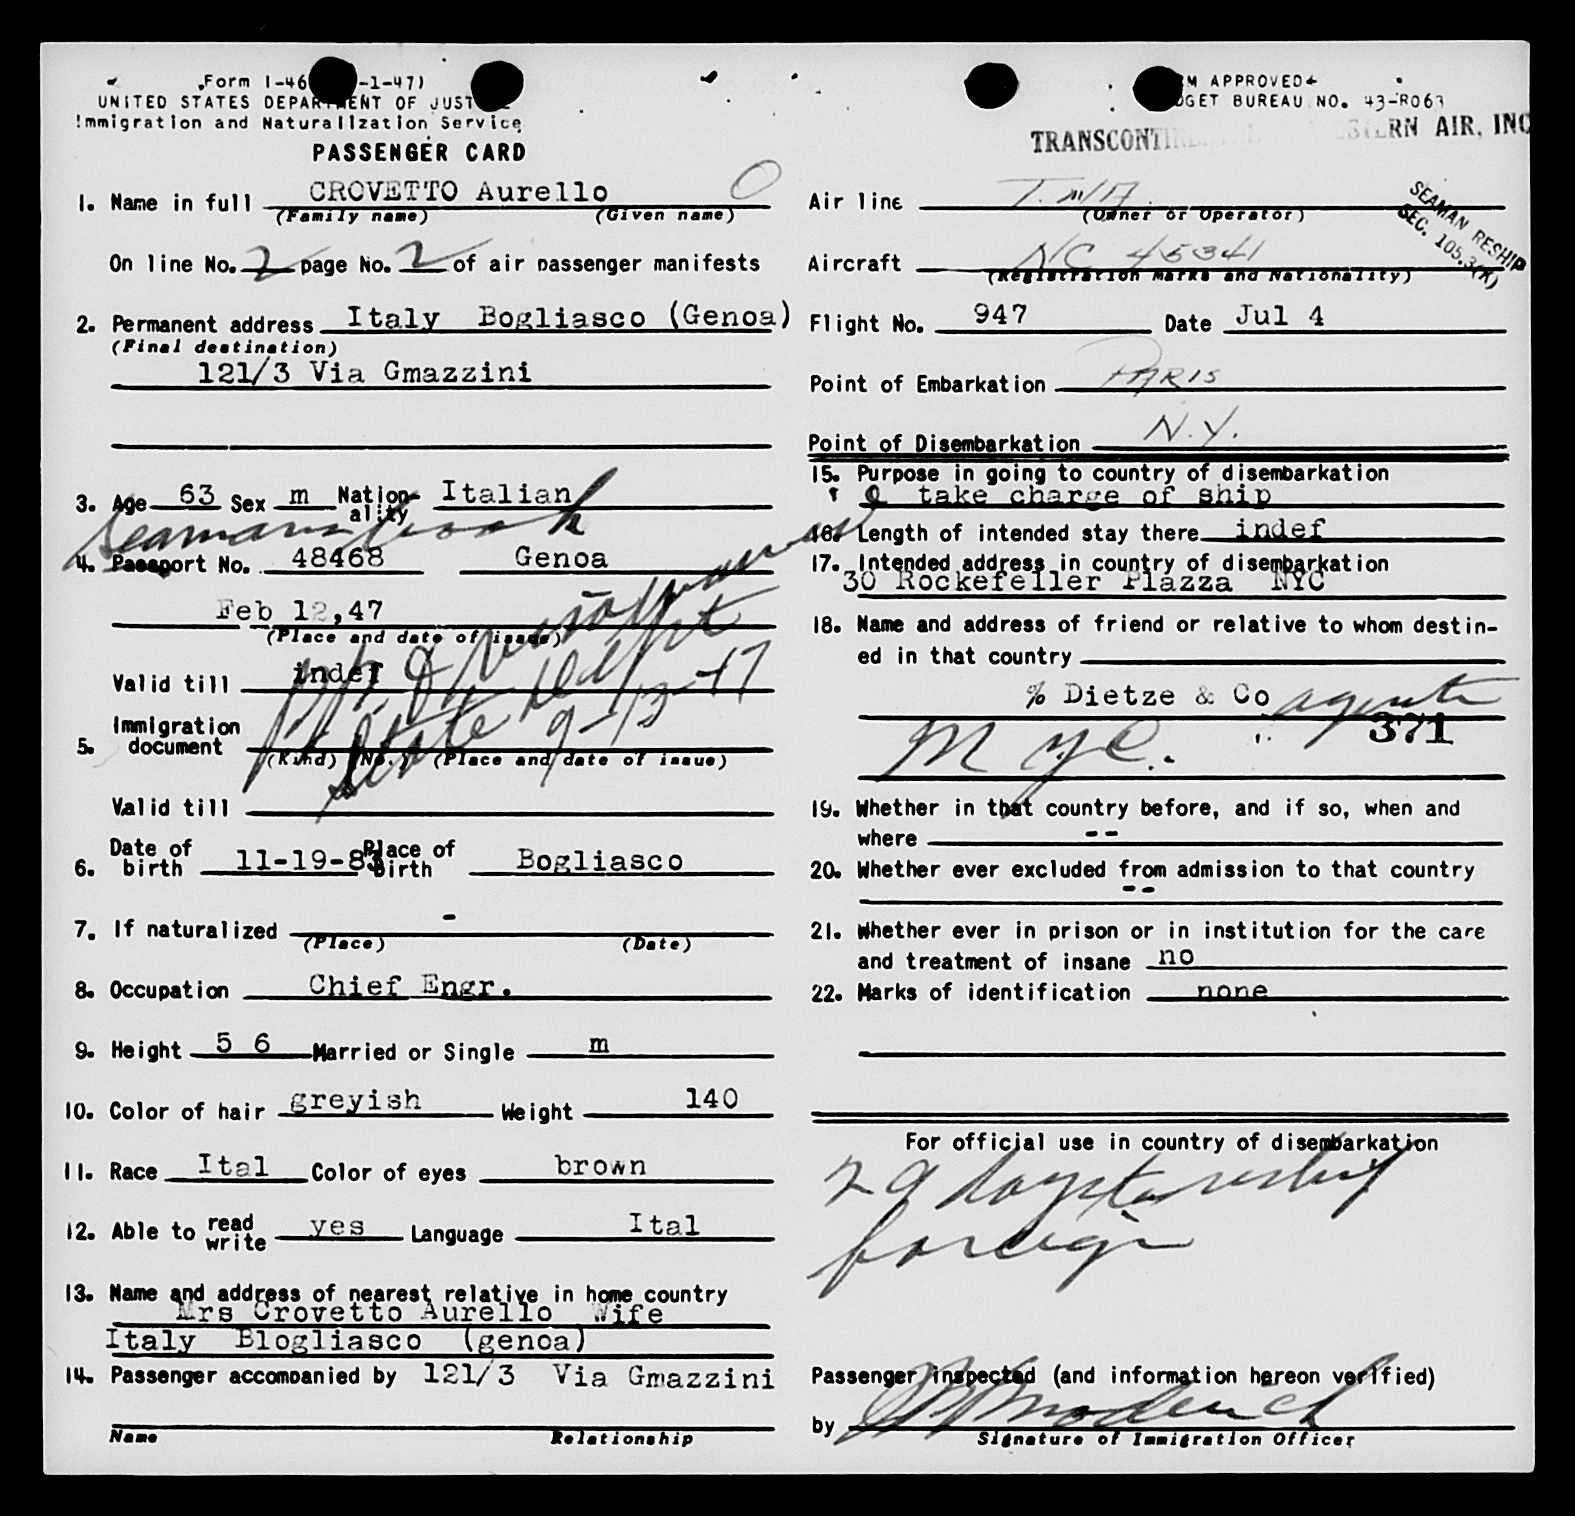 Form I-46 -1-47)
UNITED STATES DEPARTMENT OF JUSTICE
Immigration and Naturalization Service
PASSENGER CARD
1. Name in full CROVETTO Aurello O
(Family name) (Given name)
On line No. 2 page No. 2 of air passenger manifests
2. Permanent address Italy Bogliasco (Genoa)
(Final destination)
121/3 Via Gmazzini
3. Age 63 Sex m Nation-ality Italian
Seamans book
4. Passport No. 48468 Genoa
Feb 12,47
(Place and date of issue)
Valid till indef
State Dept 9-12-47
5. Immigration document
(Kind) (No.) (Place and date of issue)
Valid till
6. Date of birth 11-19-83 Place of birth Bogliasco
7. If naturalized -
(Place) (Date)
8. Occupation Chief Engr.
9. Height 5 6 Married or Single m
10. Color of hair greyish Weight 140
11. Race Ital Color of eyes brown
12. Able to read write yes Language Ital
13. Name and address of nearest relative in home country
Mrs Crovetto Aurello Wife
Italy Blogliasco (genoa)
14. Passenger accompanied by 121/3 Via Gmazzini
Name Relationship
FORM APPROVED
BUDGET BUREAU NO. 43-R063
TRANSCONTINENTAL & WESTERN AIR, INC
Air line T.W.A.
(Owner or Operator)
SEAMAN RESHIP
SEC. 105.3(K)
Aircraft NC 45341
(Registration Marks and Nationality)
Flight No. 947 Date Jul 4
Point of Embarkation PARIS
Point of Disembarkation N.Y.
15. Purpose in going to country of disembarkation
take charge of ship
16. Length of intended stay there indef
17. Intended address in country of disembarkation
30 Rockefeller Plazza NYC
18. Name and address of friend or relative to whom destin-
ed in that country
% Dietze & Co agents
371
N Y C.
19. Whether in that country before, and if so, when and
where --
20. Whether ever excluded from admission to that country
--
21. Whether ever in prison or in institution for the care
and treatment of insane no
22. Marks of identification none
For official use in country of disembarkation
29 days to reship
foreign
Passenger inspected (and information hereon verified)
by
Signature of Immigration Officer